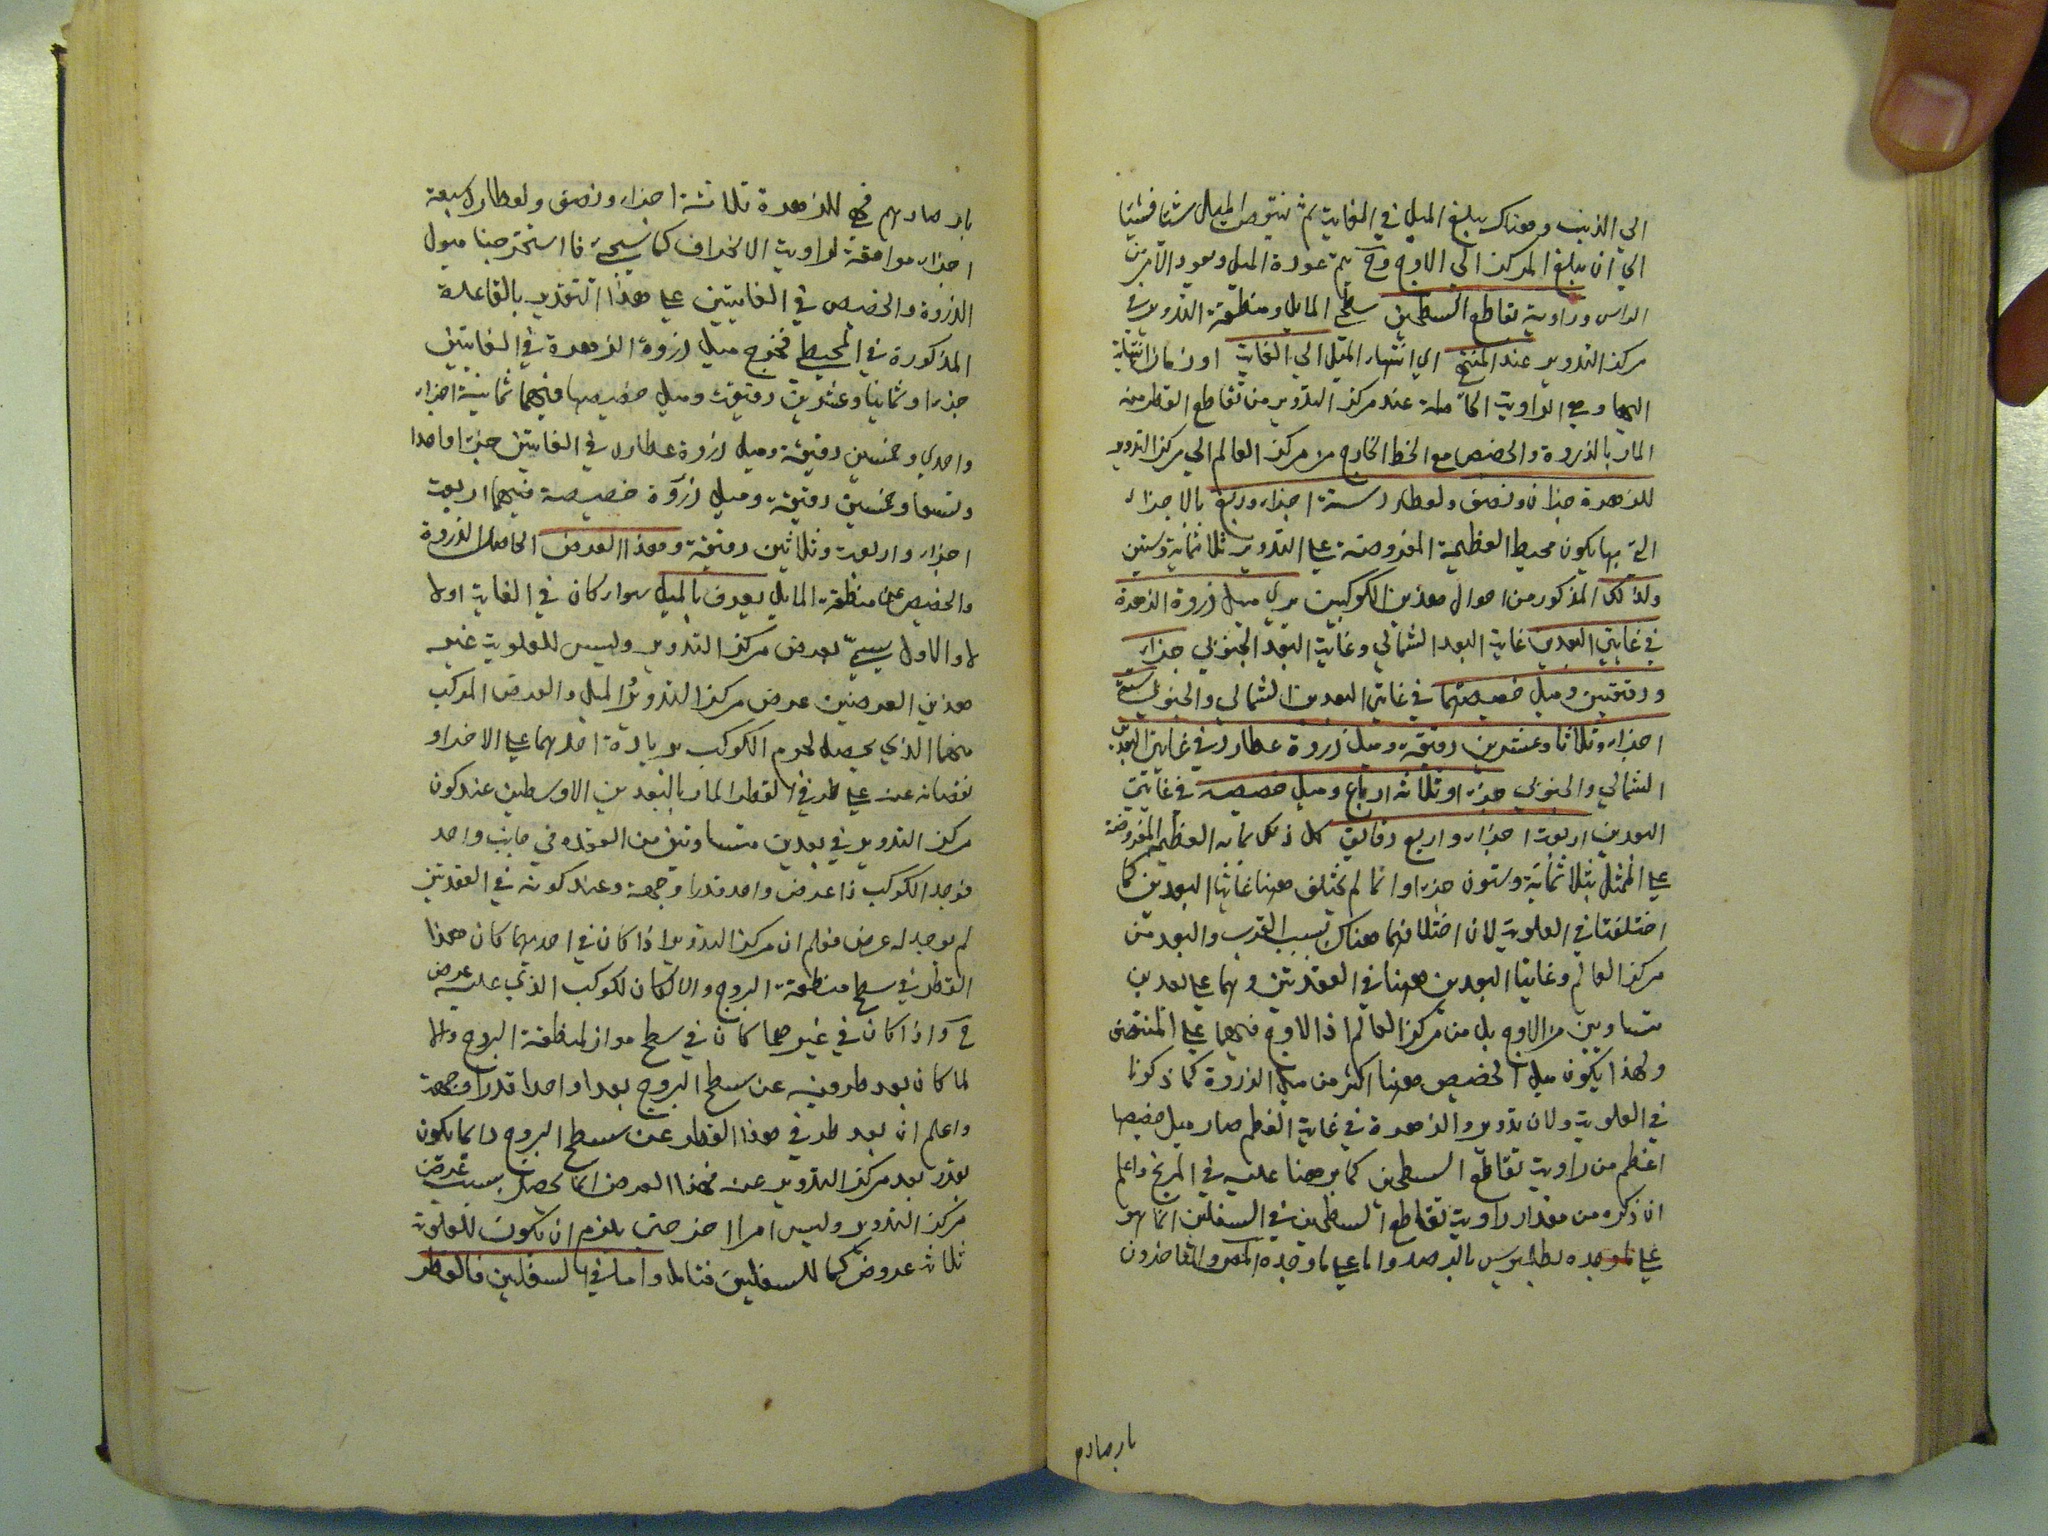 الي الذنب وهناك يبلغ الميل في الغاية ثم ينتقص الميل شيئا فشيئا
الي ان يبلغ المركز الي الاوج وح يتم عودة الميل ويعود الامر من
الراس وزاوية تقاطع السطحين سطح المايل ومنطقة التدوير في
مركز التدوير عند المنتهي اي انتهاء الميل الي الغاية او زمان انتهائه
اليها وهي الزاوية الحاصلة عند مركز التدوير من تقاطع القطر منه
المار بالذروة والحضيض مع الخط الخارج من مركز العالم الي مركز التدوير
للزهرة جزان ونصف ولعطارد ستة اجزاء وربع بالاجزاء
التي بها يكون محيط العظيمة المفروضة علي التدوير ثلاثماية وستين
ولذلك المذكور من احوال هذين الكوكبين يري ميل ذروة الزهرة
في غايتي البعدين غاية البعد الشمالي وغاية البعد الجنوبي جزاء
ودقيقتين وميل حضيضها في غايتي البعدين الشمالي والجنوبي ستة
اجزاء وثلاثا وعشرين دقيقة وميل ذروة عطارد في غايتي البعدين
الشمالي والجنوبي جزءا وثلاثة ارباع وميل حضيضه في غايتي
البعدين اربعة اجزاء واربع دقايق كل ذلك بما به العظيمة المفروضة
علي الممثل بثلاثماية وستون جزءا وانما لم يختلف هينا غايتا البعدين كما
اختلفتا في العلوية لان اختلافهما هناك بسبب القرب والبعد من
مركز العالم وغايتا البعدين ههنا في العقدتين وهما علي بعدين
متساويين من الاوج بل من مركز العالم اذ الاوج فيهما علي المنتصف
ولهذا يكون ميل الحضيض ههنا اكثر من ميل الذروة كما ذكرنا
في العلوية ولان تدوير الزهرة في غاية العظم صار ميل حضيضها
اعظم من زاوية تقاطع السطحين كما برهنا عليه في المريخ واعلم
ان ذكره من مقدار زاوية تقاطع السطحين في السفلين انما هو
علي ما وجده بطلميوس بالرصد واما علي ما وجده المص والمتاخرون
بارصادهم
بارصادهم فهي للزهرة ثلاثة اجزاء ونصف ولعطارد سبعة
اجزاء موافقة لزاوية الانحراف كما سيجئ فا استخرجنا ميول
الذروة والحضيض في الغايتين علي هذا التقدير بالقاعدة
المذكورة في المحيط فخرج ميل ذروة الزهرة في الغايتين
جزءا وثمانيا وعشرين دقيقة وميل حضيضها فيهما ثمانية اجزاء
واحدي وخمسين دقيقة وميل ذروة عطارد في الغايتين جزءا واحدا
وتسعا وخمسين دقيقة وميل ذروة حضيضه فيهما اربعة
اجزاء واربعة وثلاثين دقيقة وهذا العرض الحاصل للذروة
والحضيض عن منطقة المايل يعرف بالميل سواء كان في الغاية اولا
لا والاول يسمي بعرض مركز التدوير وليس للعلوية غير
هذين العرضين عرض مركز التدوير والميل والعرض المركب
منهما الذي يحصل لجرم الكوكب بزيادة احدهما علي الاخر او
نقصانه عنه علي طرفي القطر المار بالبعدين الاوسطين عند كون
مركز التدوير في بعدين متساويين من العقده في جانب واحد
فوجد الكوكب ذا عرض واحد قدرا وجهة وعند كونه في العقدتين
لم يوجد له عرض فعلم ان مركز التدوير اذا كان في احديهما كان هذا
القطر في سطح منطقة البروج والا لكان لكوكب الذي عليه عرض
ح واذا كان في غيرهما كان في سطح مواز لمنطقة البروج والا
لما كان بعد طرفيه عن سطح البروج بعدا واحدا قدرا وجهة
واعلم ان بعد طرفي هذا القطر عن سطح البروج دايما يكون
بقدر بعد مركز التدوير عنه فهذا العرض انما يحصل بسبب عرض
مركز التدوير وليس امرا اخر حتي يلزم ان يكون للعلوية
ثلاثة عروض كما للسفليين فتامل واما في السفليين فالقطر